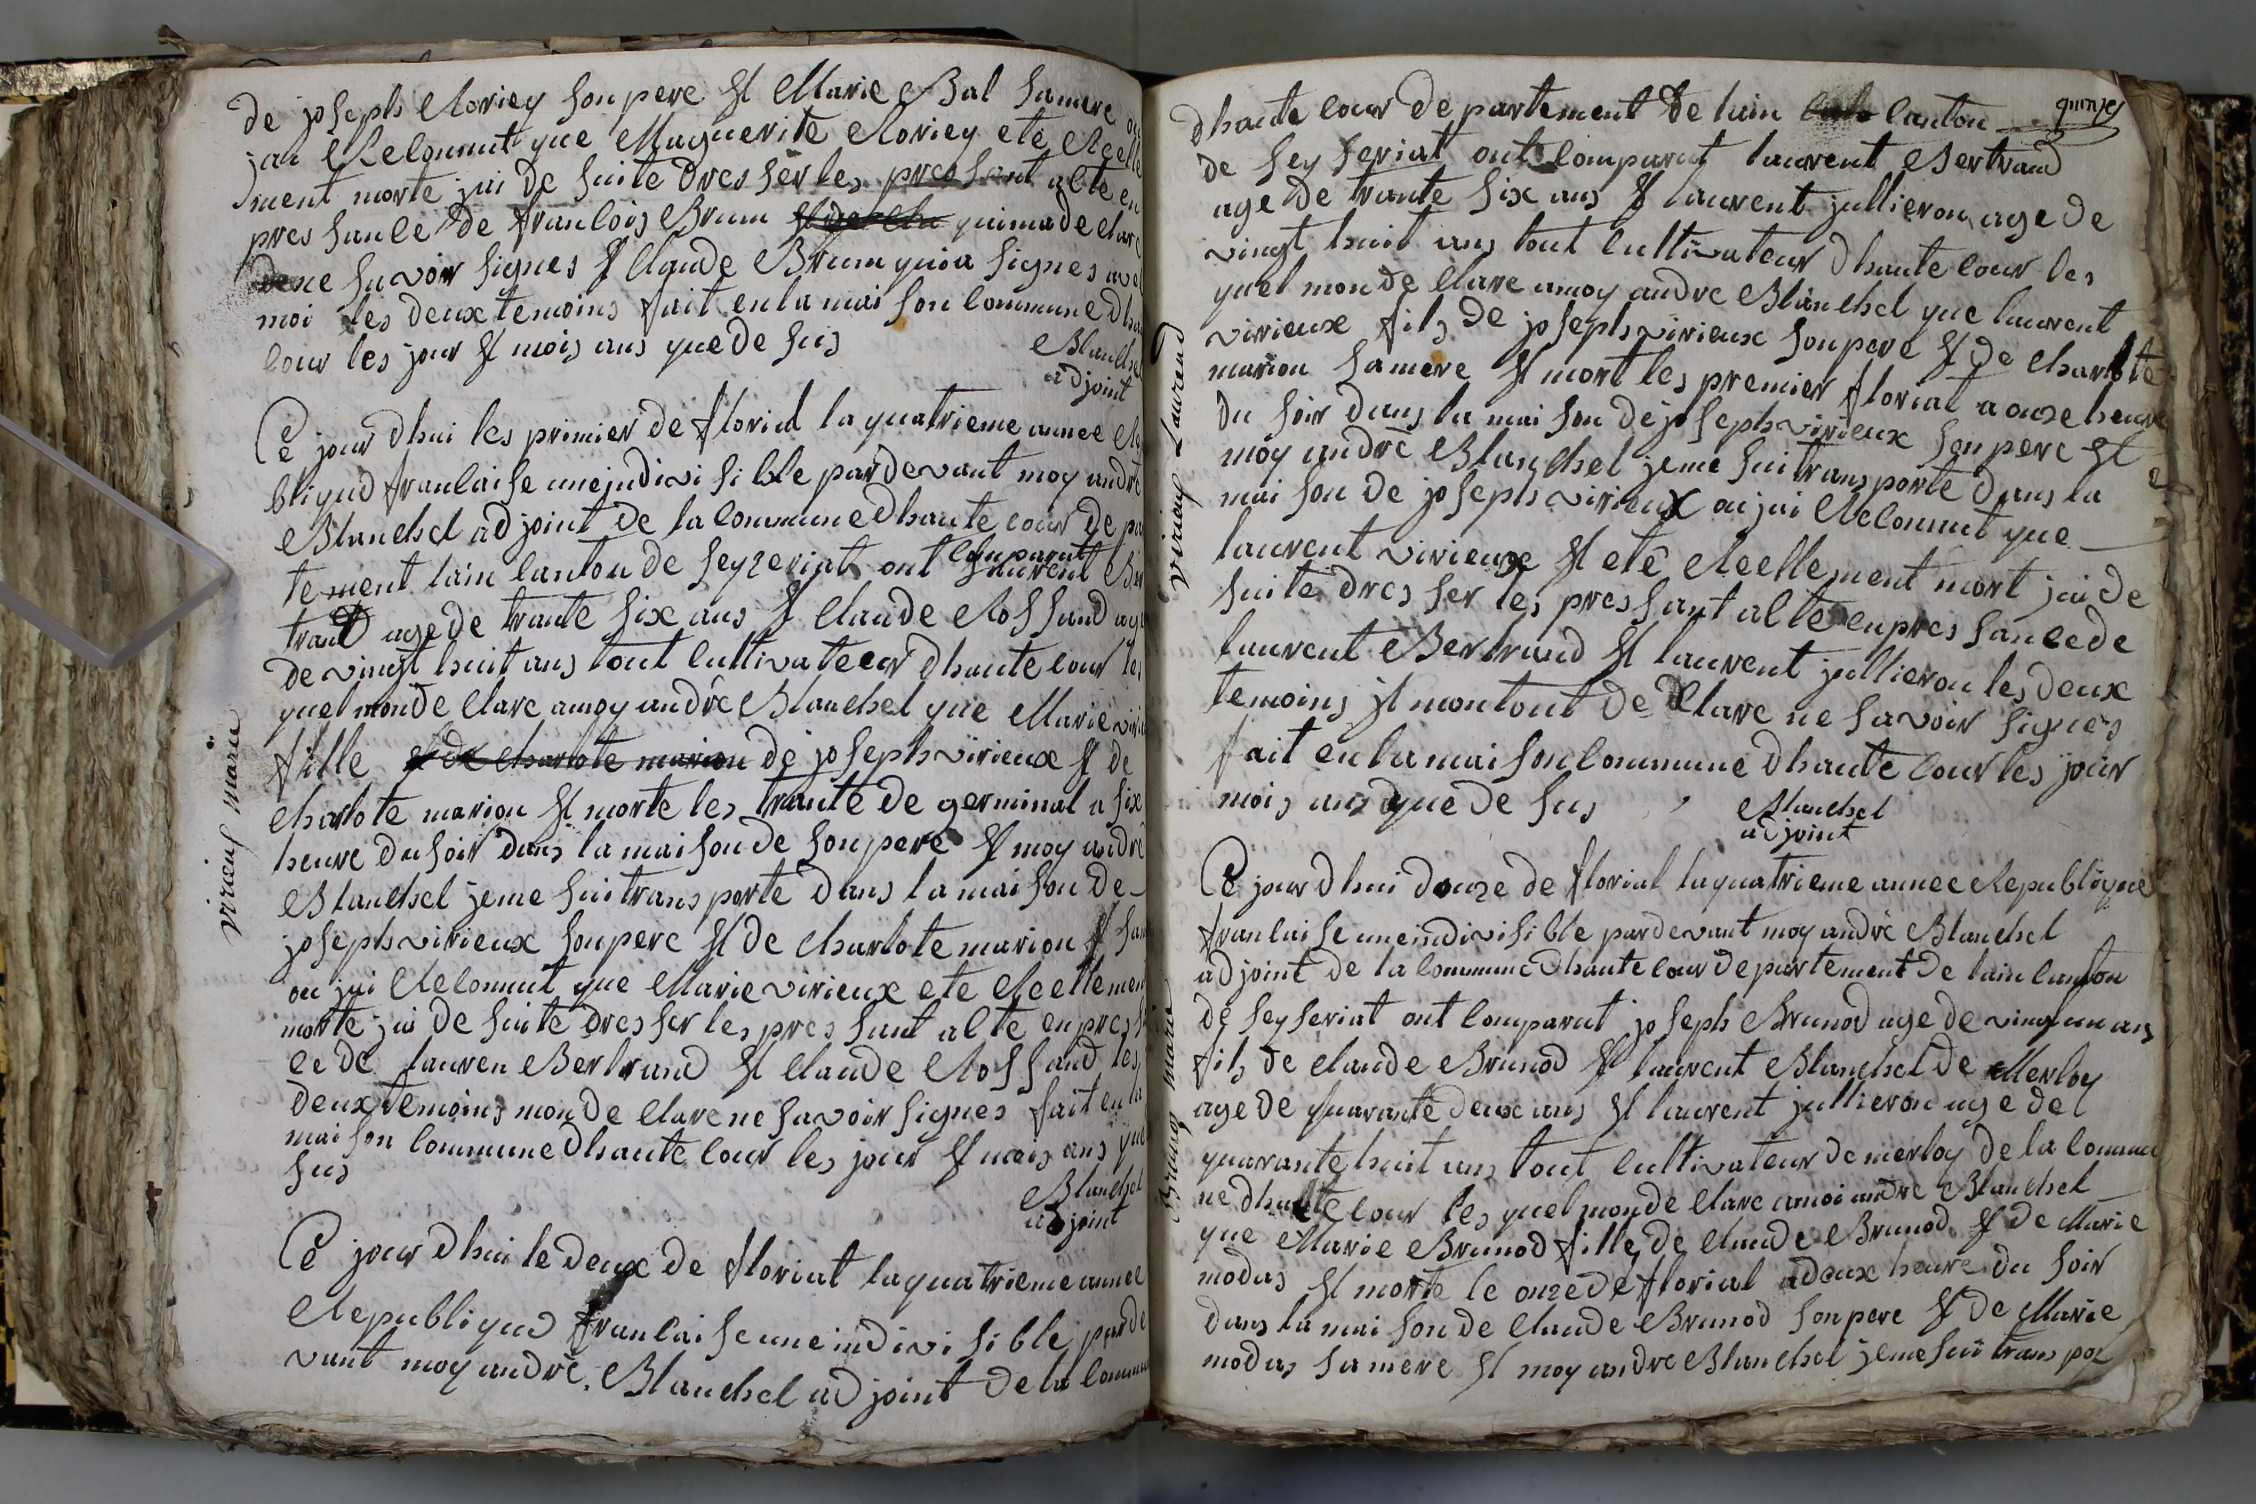 de joseph Moriey son pere et Marie Bal sa mere
jai Reconnut que Maguerite Moriey ete Reelle
ment morte jai de suite dres ser les pres sant acte en
pres sance de francois Brun qui ma de clare
de ne savoir signes et claude Brun qui a signes avec
moi les deux temoins fait en la mai son commune dhau
cour les jour et mois ans que de sus
Blanchel
adjoint
Ce jour dhui les primier de florial la quatrieme annee Re
bliqud francaise une jndivi si ble par devant moy andre
Blanchel adjoint de la commune dhaute cour de par
comparut
tement lain canton de seyzeriat ont laurent Ber
trand age de trante six ans et claude Rossand age
de vingt huit ans tout cultivateur dhaute cour les
quel mon de clare amoy andre Blanchel que Marie virieu
fille et de charlote marion de joseph virieux et de
charlote marion et morte les trante de germinal a six
heure du soir dans la maison de son pere et moy andre
Blanchel je me sui trans porte dans la mai son de
joseph virieux son pere et de charlote marion et sa
ou jai Reconnut que Marie virieux ete Reellemen
morte jai de suite dres ser les pres sant acte en pres s
ce de lauren Bertrand et claude Rossand les
deux temoins mon de clare ne savoir signes fait en la
mai son commune dhaute cour les jour et mois ans que
sus
Blanchel
adjoint
Ce jour dhui le deux de floriat la quatrieme annee
Republiqud francai se une indivi si ble par de
vant moy andre Blanchel adjoint de la commu
virieux marie
quinze
dhaute cour de partement de luin canton
de sey seriat ont comparut laurent Bertrand
age de trante six ans et laurent jullieron age de
vingt huit ans tout cultivateur dhaute cour les
quel mon de clare amoy andre Blanchel que laurent
virieux fils de joseph virieux son pere et de charlote
marion sa mere et mort les premier florial a onze heure
du soir dans la mai son de joseph virieux son pere et
moy andre Blanchel je me sui trans porte dans la
mai son de joseph virieux ou jai Reconnut que
laurent virieux et ete Reellement mort jai de
suite dres ser les pres sant acte en pres sance de
laurent Bertrand et laurent jullieron les deux
temoins jl mon tout de clare ne savoir signes
fait en la mai son commune dhaute cour les jour
mois ans que de sus
Blanchel
adjoint
virieux Laurend
Ce jour dhui douze de florial la quatrieme annee Republique
francai se une indivi si ble par devant moy andre Blanchel
adjoint de la commune dhaute cour departement de lain canton
de sey seriat ont comparut joseph Brunod age de vingt un ans
fils de claude Brunod et laurent Blanchel de Merloy
age de quarante deux ans et laurent jullieron age de
quarante huit ans tout cultivateur de merloy de la commu
ne dhaute cour les quel mon de clare amoi andre Blanchel
que Marie Brunod fille de claude Brunod et de Marie
modas et morte le onze de florial a deux heure du soir
dans la mai son de claude Brunod son pere et de Marie
modas sa mere et moy andre Blanchel je me sui trans por
Brunod marie